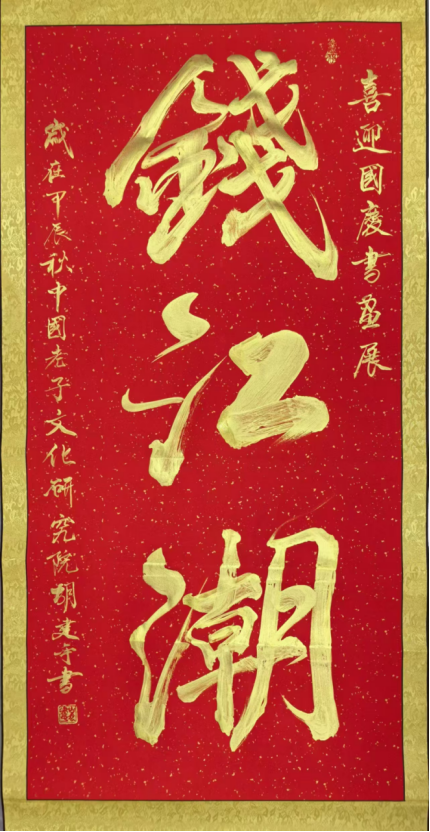 喜迎國慶書畫展
錢江潮
歲在甲辰秋中國老子文化研究院胡建于書